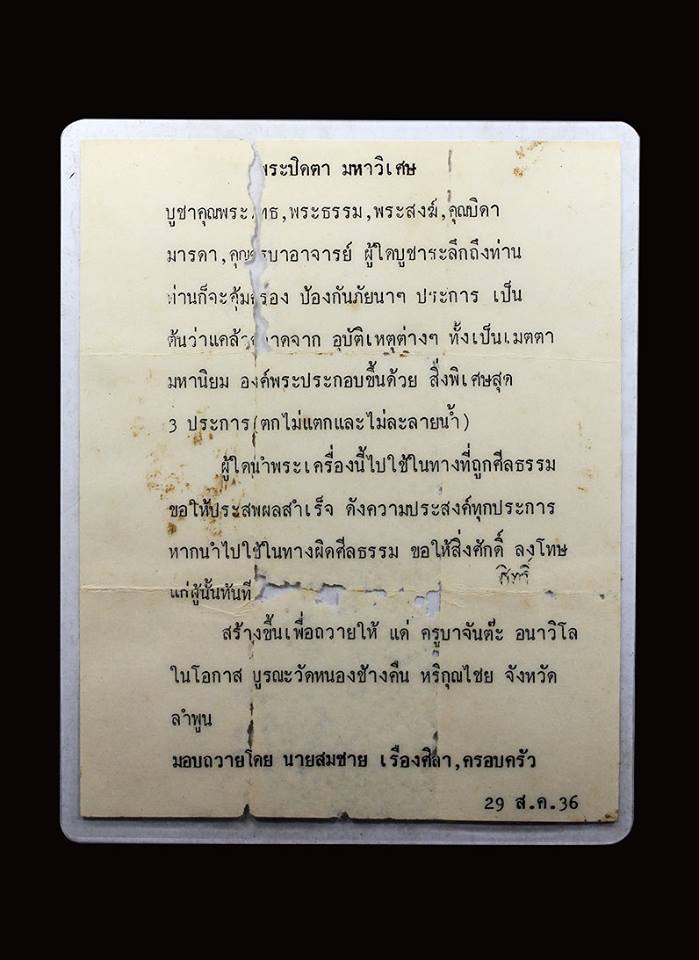 พระปิดตา มหาวิเศษ
บูชาคุณพระพุทธ,พระธรรม,พระสงฆ์,คุณบิดา
มารดา,คุณครูบาอาจารย์ ผู้ใดบูชาระลึกถึงท่าน
ท่านก็จะคุ้มครอง ป้องกันภัยนาๆ ประการ เป็น
ต้นว่าแคล้วคลาดจาก อุบัติเหตุต่างๆ ทั้งเป็นเมตตา
มหานิยม องค์พระประกอบขึ้นด้วย สิ่งพิเศษสุด
3 ประการ(ตกไม่แตกและไม่ละลายน้ำ)
ผู้ใดนำพระเครื่องนี้ไปใช้ในทางที่ถูกศีลธรรม
ขอให้ประสพผลสำเร็จ ดังความประสงค์ทุกประการ
หากนำไปใช้ในทางผิดศีลธรรม ขอให้สิ่งศักดิ์ ลงโทษ
สิทธิ์
แก่ผู้นั้นทันที
สร้างขึ้นเพื่อถวายให้ แด่ ครูบาจันต๊ะ อนาวิโล
ในโอกาส บูรณะวัดหนองช้างคืน หริภุณไชย จังหวัด
ลำพูน
มอบถวายโดย นายสมชาย เรืองศิลา,ครอบครัว
29 ส.ค.36